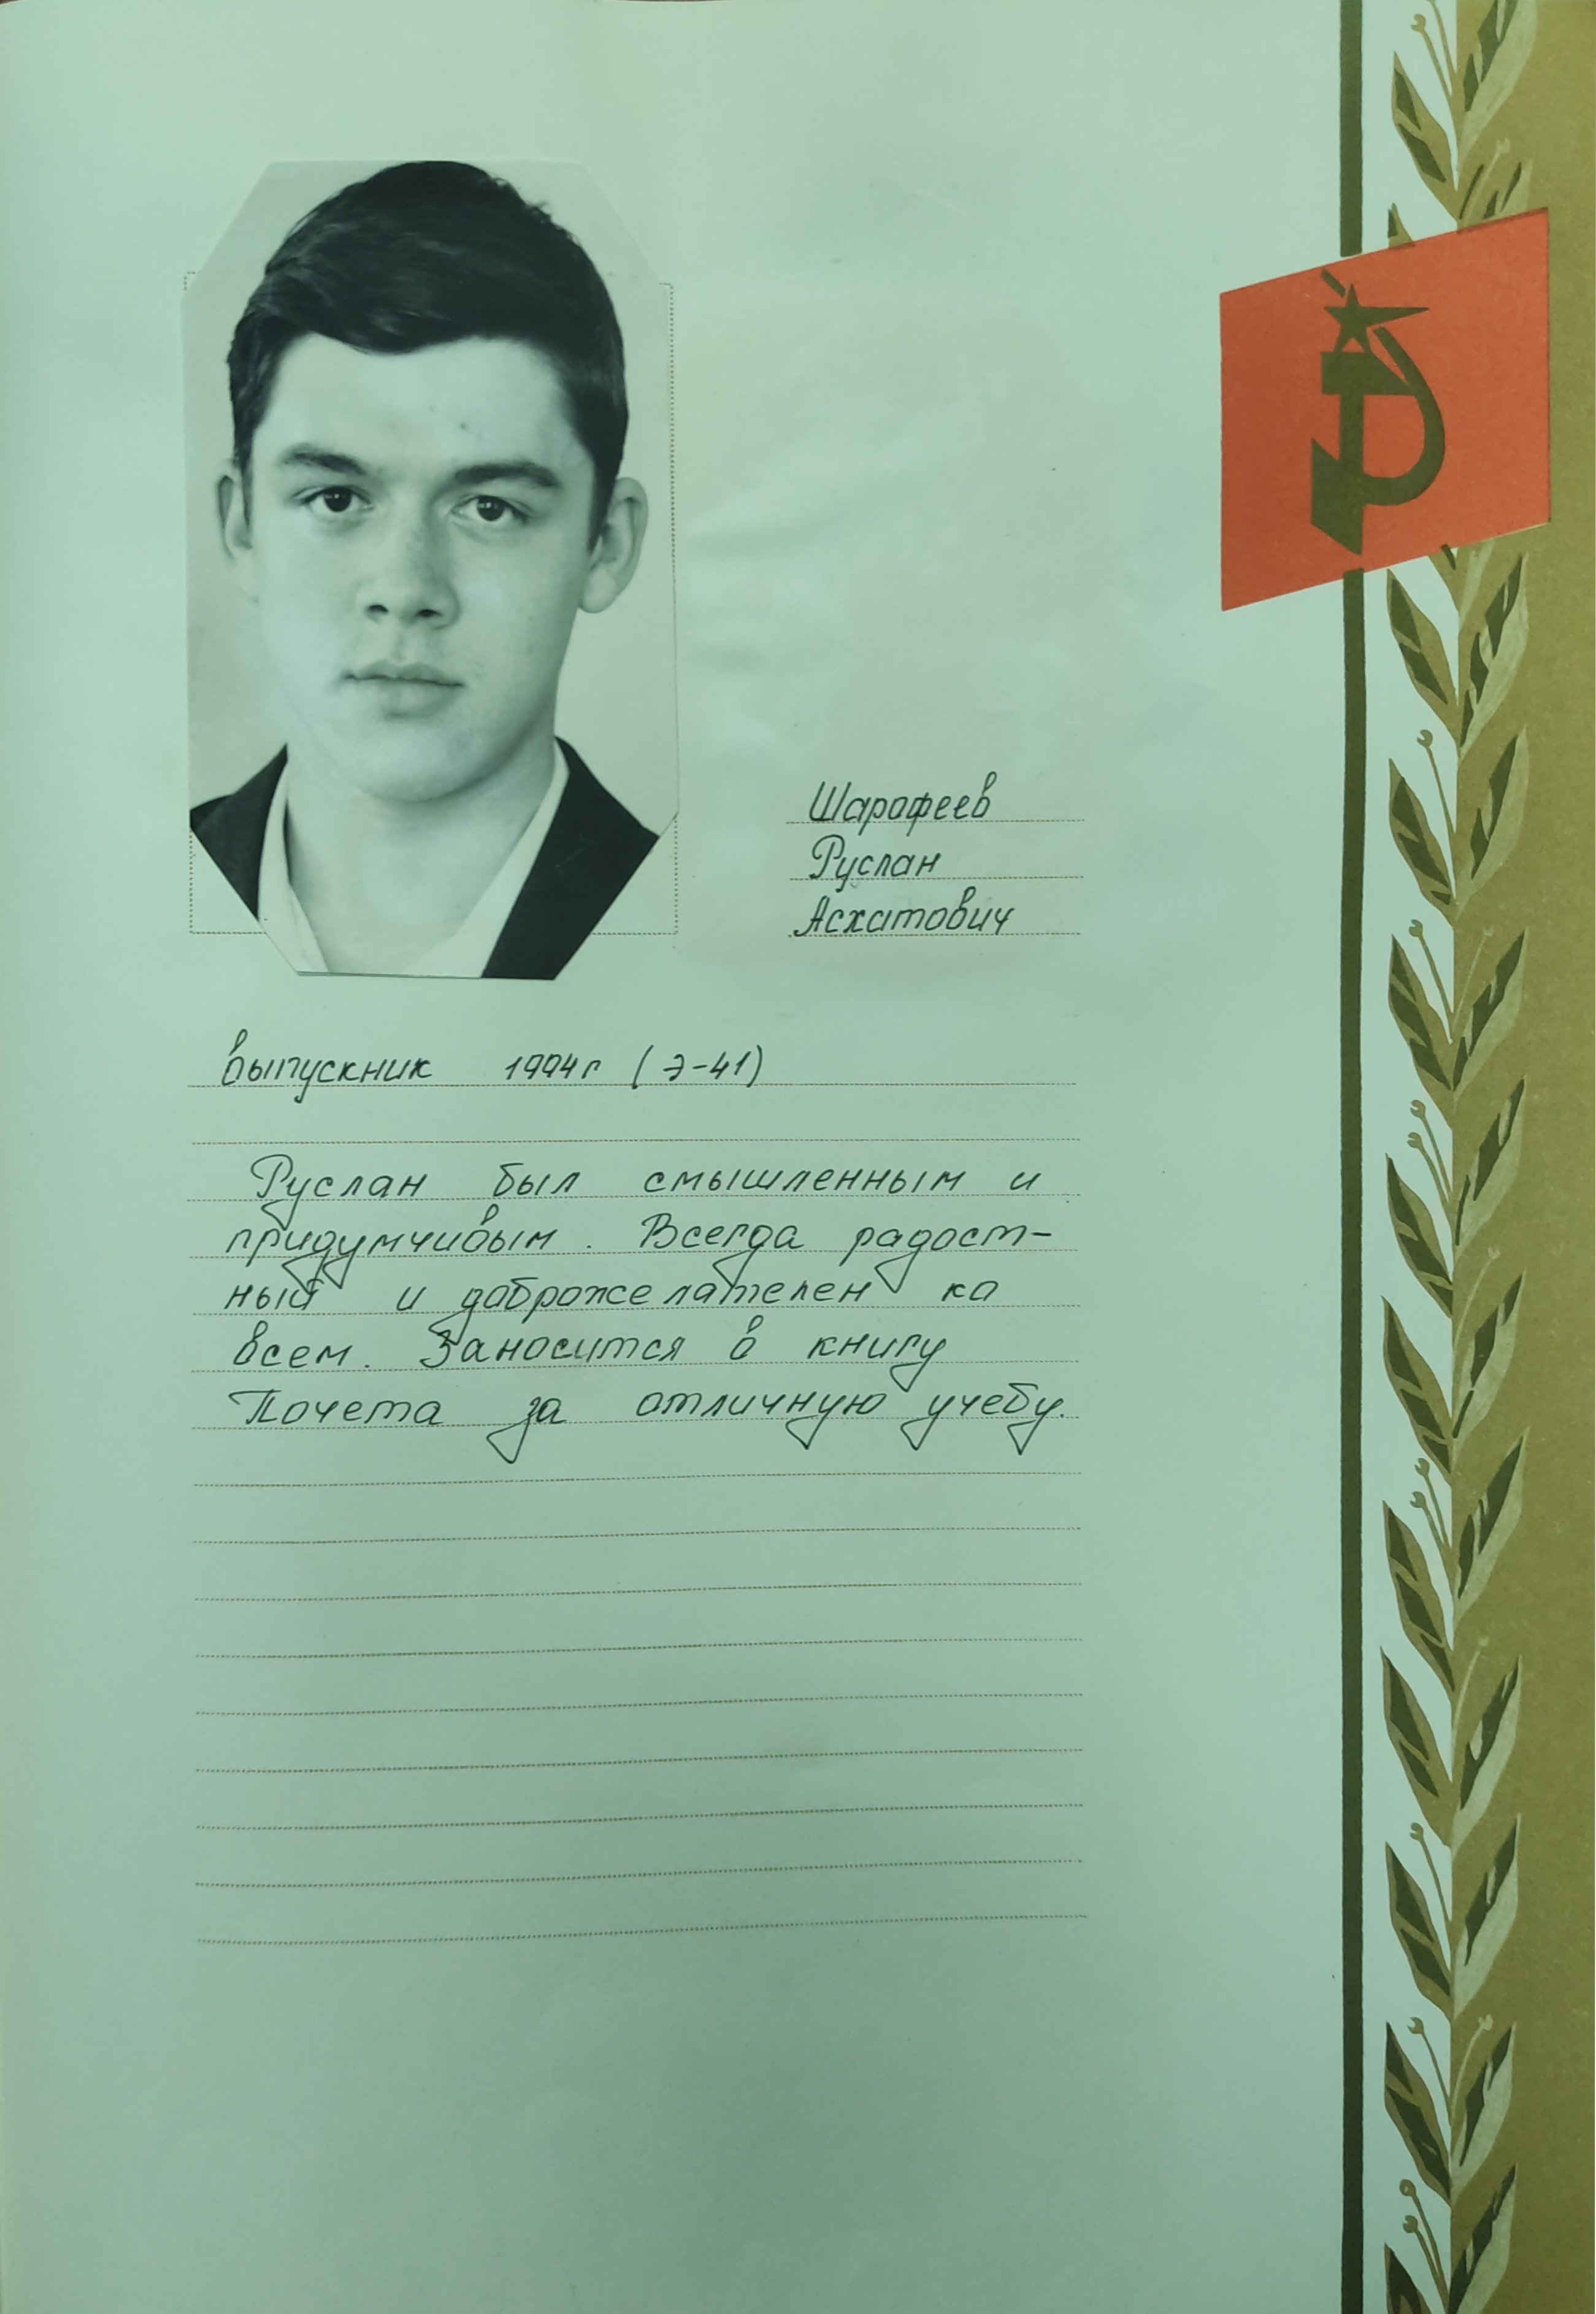 Шарофеев
Руслан
Асхатович
выпускник 1994г (Э-41)
Руслан был смышленным и
придумчивым. Всегда радост-
ный и доброжелателен ко
всем. Заносится в книгу
Почета за отличную учебу.